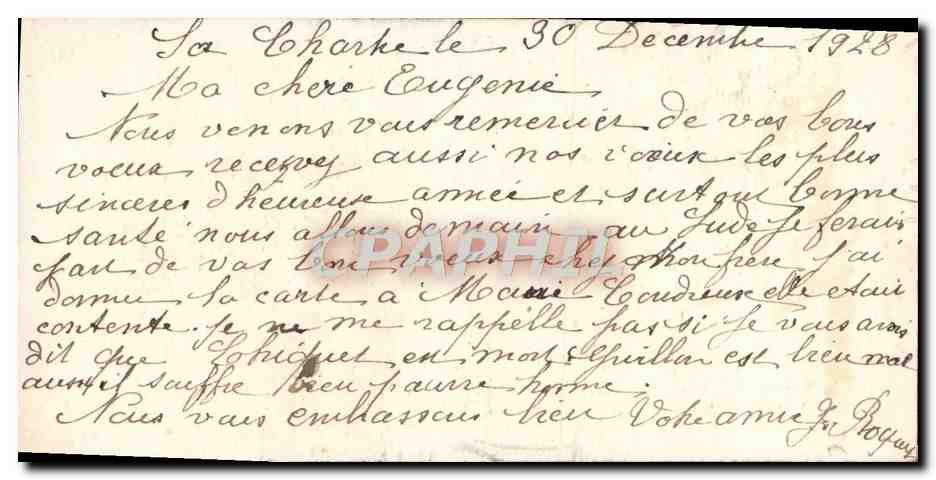 La Chartre le 30 Decembre 1928
Ma chere Eugenie
Nous venons vous remercier de vos bons
voeux recevez aussi nos voeux les plus
sinceres d'héureuse année et surtout bonne
santé nous allons demain au Lude je ferais
part de vos bon voeux chez Mon frere j'ai
donne la carte a Marie Coudreux elle etait
contente. Je ne me rappelle pas si je vous avais
dit que est mort Guillon est bien mal
aussi il souffre bien pauvre homme.
Nous vous embassons bien Votre amie
CPAPHIL